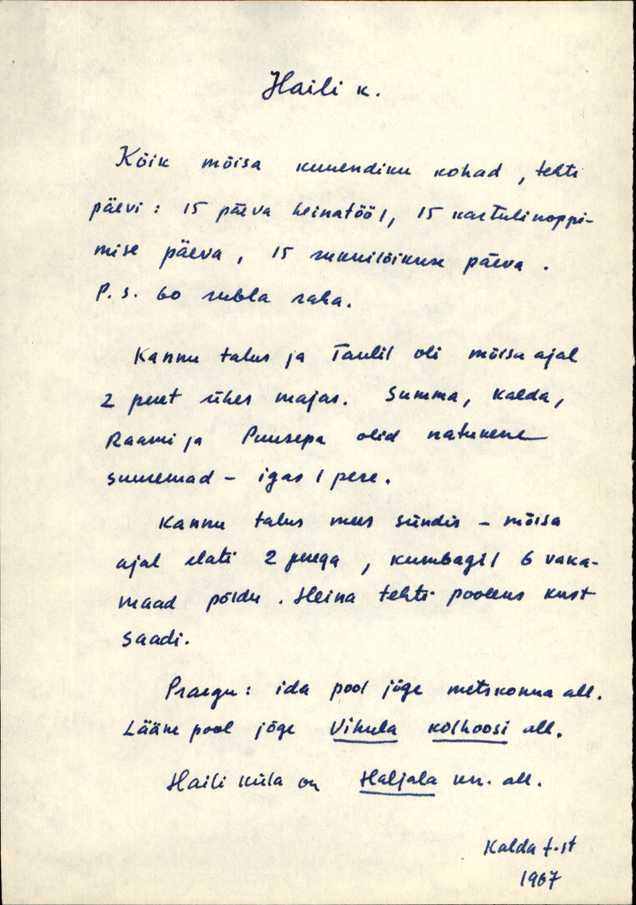 Haili k.
Kõik mõisa kuuendiku kohad, tehti
päevi: 15 päeva heinatööl, 15 kartulinoppi-
mise päeva, 15 rukkilõikuse päeva.
P.S. 60 rubla raha.
Kannu talus ja Taulil oli mõisa ajal
2 peret ühes majas. Summa, Kalda,
Raami ja Puusepa olid natukene
suuremad - igas 1 pere.
Kannu talus mees sündis - mõisa
ajal elati 2 perega, kumbagil 6 vaka-
maad põldu. Heina tehti pooleks kust
saadi.
Praegu: ida pool jõge metskonna all.
Lääne pool jõge Vihula kolhoosi all.
Haili küla on Haljala kn. all.
Kalda t-st
1967